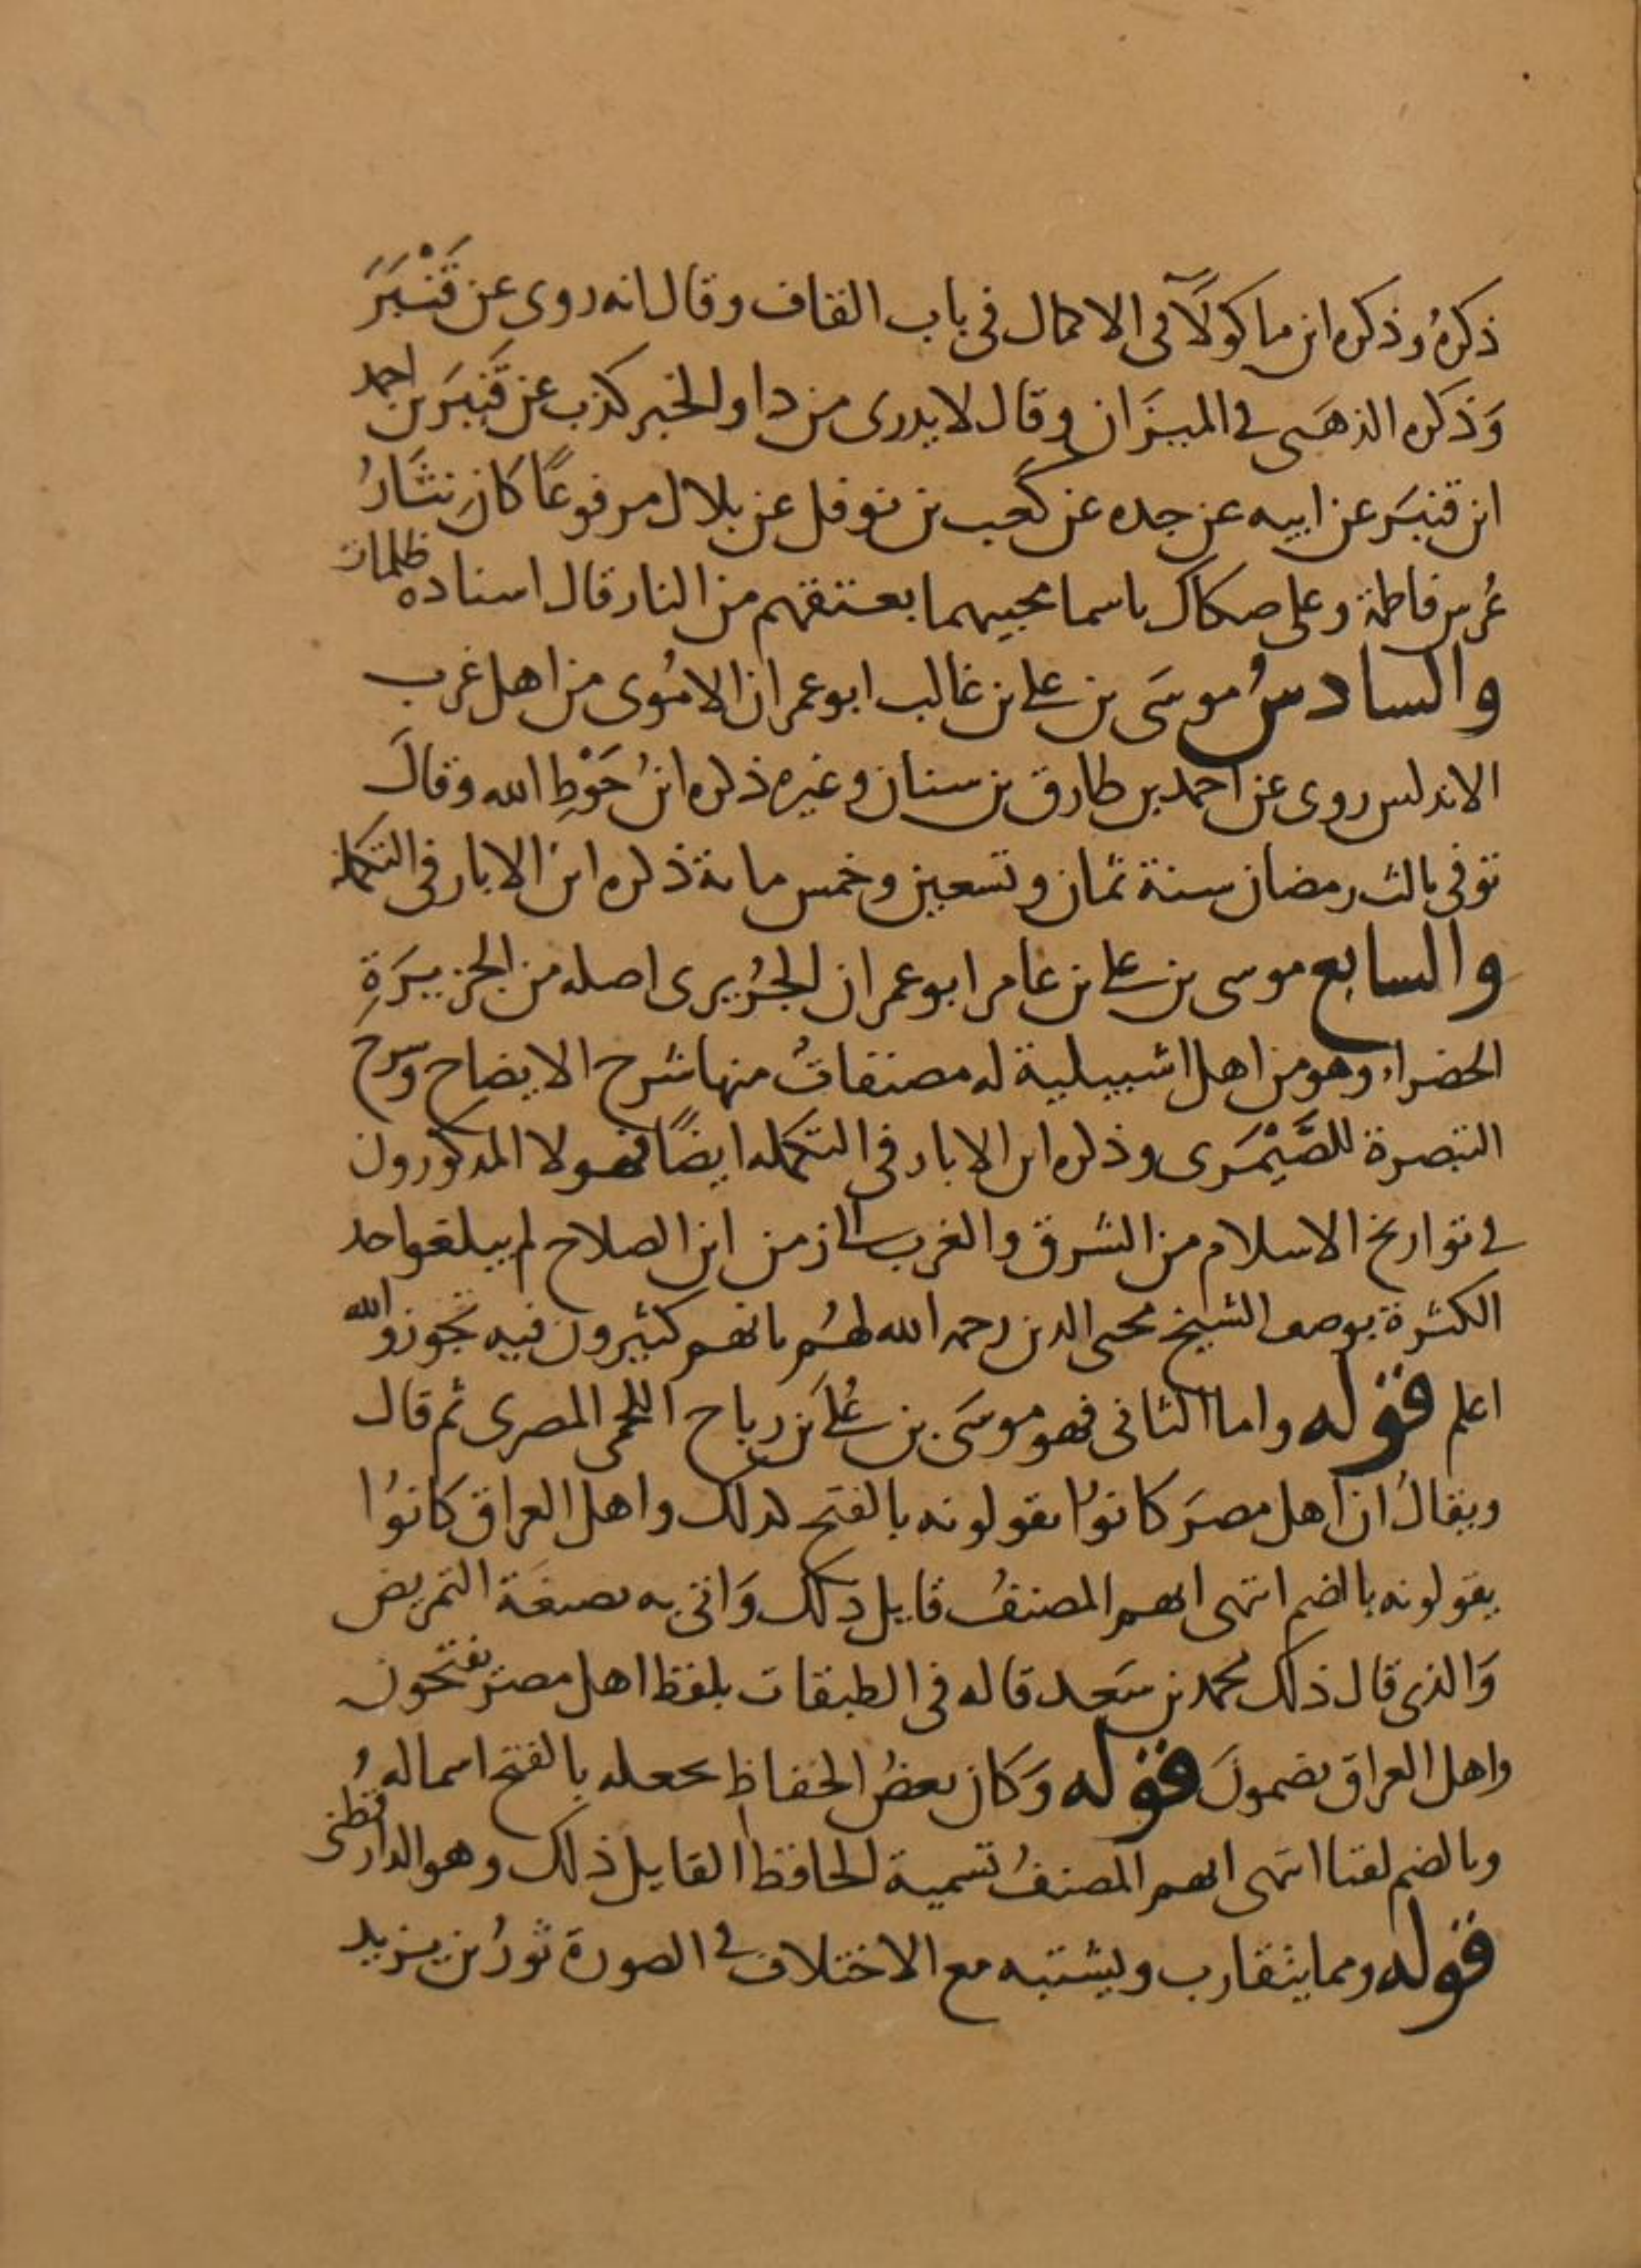 ذكرهُ وذكره ابن ماكولَآ فى الاكمال فى باب القاف وقال انه روى عن قَنْبَرَ
وَذكره الذهَبى فے الميزَان وقال لا يدرى من ذا والخبر كذب عن قَنبَرَ بن احمد
ابن قنبَر عن ابيه عن جده عن كَعب بن نوفل عن بلال مرفوعًا كانَ نثَارُ
عُرس فاطمة وعلى صكاك باسما محبيهما بعتقهم من النار قال اسناده ظلمات
والسادسُ موسَى بن علے بن غالب ابو عمران الامُوى من اهل غرب
الاندلس روى عن احمد بن طارق بن سنان وغيره ذكره ابنُ حَوْطِ الله وقالَ
توفى ثالث رمضان سنة ثمان وتسعين وخمس مائة ذكره ابن الابار فى التكملة
والسابع موسى بن علے بن عامر ابو عمران الجزُيرى اصله من الجزيرَةِ
الخضراء وهو من اهل اشبيلية له مصنفاتُ منها شرح الايضاح وشرح
التبصرة للصَّيْمَرى وذكره ابن الابار فى التكمله ايضًا فهولا المذكورون
فے تواريخ الاسلام من الشرق والغرب الى زمن ابن الصلاح لم يبلغوا حد
الكثرة بوصف الشيخ محيى الدين رحمه الله لهُم بانهم كثيرون فيه تجوز والله
اعلم قوله واما الثانى فهو موسَى بن عُلَے بن رباح اللخمى المصرى ثم قال
ويقالُ ان اهل مصرَ كانوُا يقولونه بالفتح لذلك واهل العراق كانوُا
يقولونه بالضم انتهى ابهم المصنفُ قايل ذلك وَاتى به بصيغَة التمريض
وَالذى قال ذلك محمد بن سَعد قاله فى الطبقات بلفظ اهل مصر يفتحون
واهل العراق يضمونَ قوله وَكان بعضُ الحفاظ يجعله بالفتح اسما لهُ
وبالضم لقبا انتهى ابهم المصنفُ تسمية الحافظ القايل ذلك وهو الدارقطنى
قوله ومما يتقارب ويشتبه مع الاختلاف فے الصورة ثورُ بن يزيد